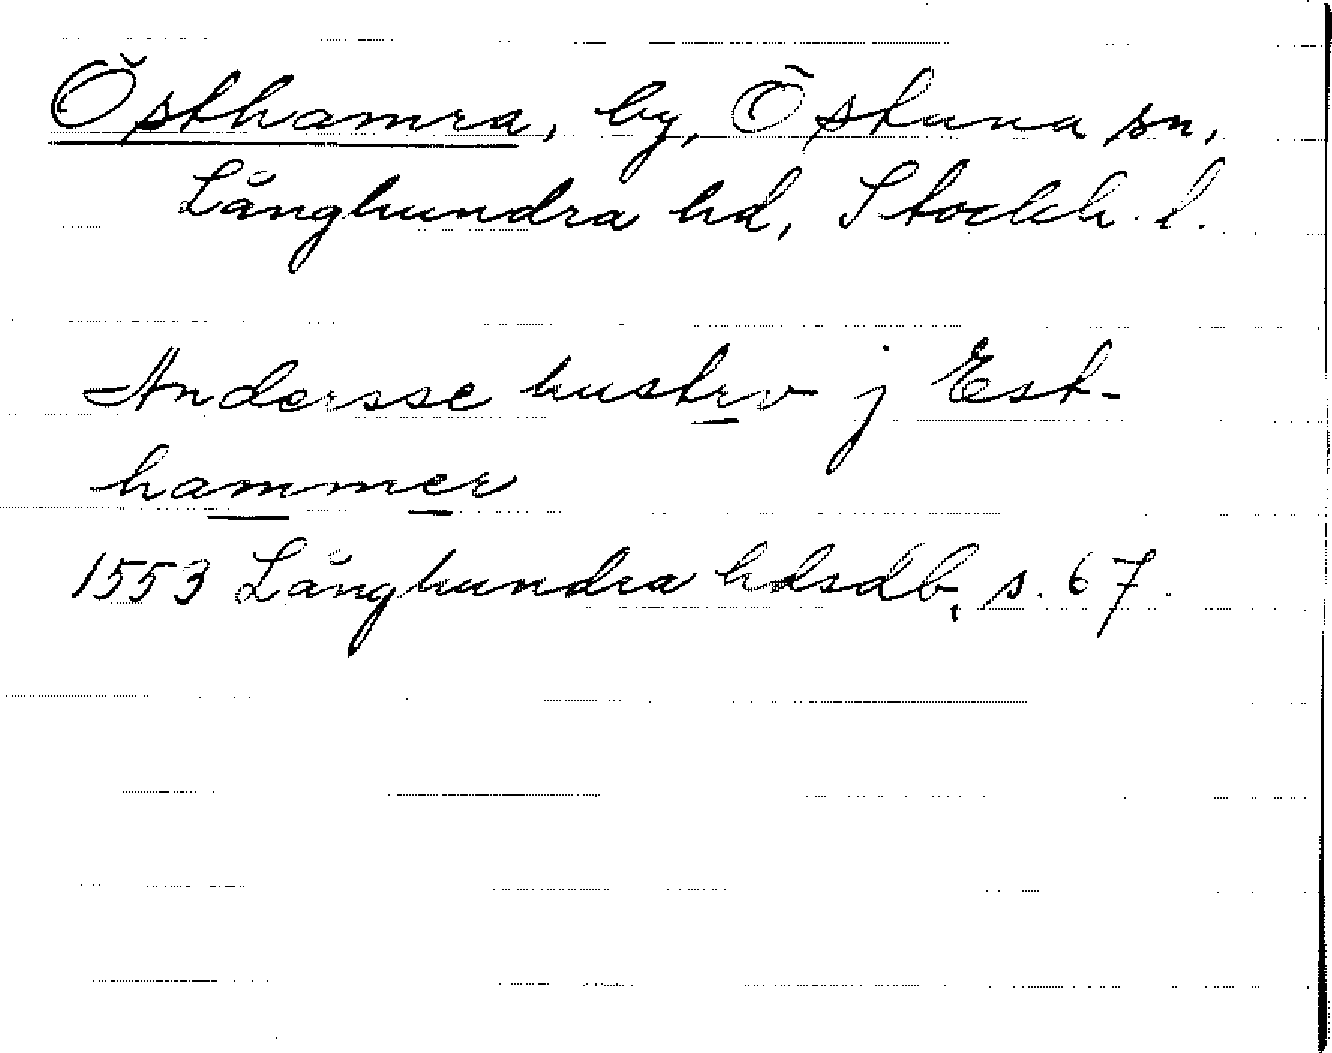 Östhamra, by, Östuna sn,
Långhundra hd, Stockh. l.
Andersse hustrv j Est-
hammer
1553 Långhundra hdsdb, s. 67.